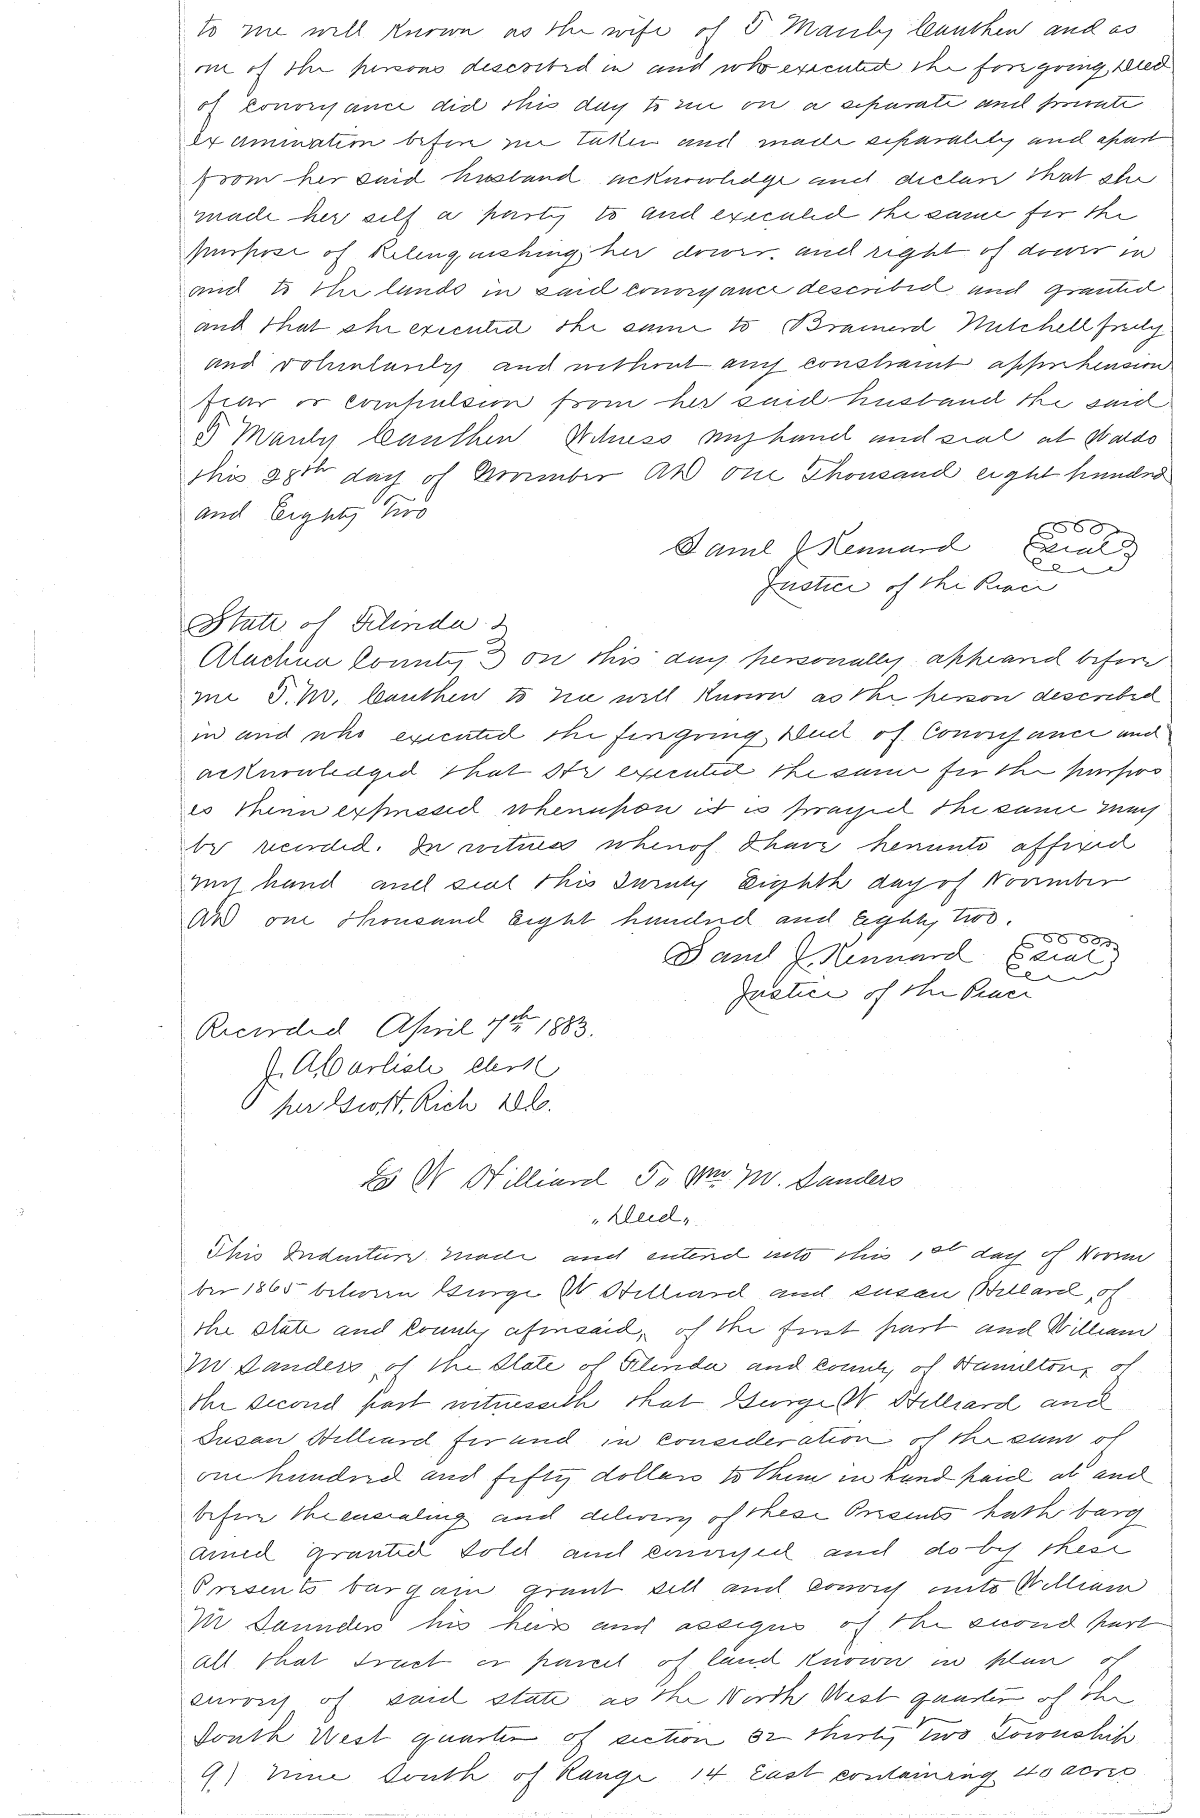 to me well known as the wife of T Manly Cauthen and as
one of the persons described in and who executed the foregoing Deed
of Conveyance did this day to me on a separate and private
examination before me taken and made separately and apart
from her said husband acknowledge and declare that she
made her self a party to and executed the same for the
purpose of Relenquishing her dower, and right of dower in
and to the lands in said conveyance described and granted
and that she executed the same to Brainerd Mitchell freely
and voluntarily and without any constraint apprehension
fear or compulsion from her said husband the said
T Manly Cauthen Witness my hand and seal at Waldo
this 28th day of November AD one Thousand eight hundred
and Eighty Two
Saml J Kennard Seal
Justice of the Peace
State of Florida
Alachua County } On this day personally appeared before
me T. M. Cauthen to me well known as the person described
in and who executed the foregoing Deed of Conveyance and
acknowledged that He executed the same for the purpos
es therein expressed whereupon it is prayed the same may
be recorded. In witness whereof I have hereunto affixed
my hand and seal this Twenty Eighth day of November
AD one thousand Eight hundred and Eighty two.
Saml J. Kennard Seal
Justice of the Peace
Recorded April 7th 1883.
J. A Carlisle Clerk
per Rich DC.
G W Hilliard To Wm M. Sanders
"Deed"
This Indenture made and entered into this 1st day of Novem
ber 1865 between George W Hilliard and Susan Hillard, of
the State and County aforesaid, of the first part and William
M Sanders, of the State of Florida and County of Hamilton, of
the second part witnesseth that George W Hilliard and
Susan Hilliard for and in consideration of the sum of
one hundred and fifty dollars to them in hand paid at and
before the ensealing and delivery of these Presents hath barg
ained granted sold and conveyed and do by these
Presents bargain grant sell and convey unto William
M Saunders his heirs and assigns of the second part
all that tract or parcel of land known in plan of
survey of said state as the North West quarter of the
South West quarter of section 32 thirty two Township
9) nine South of Range 14 East containing 40 acres